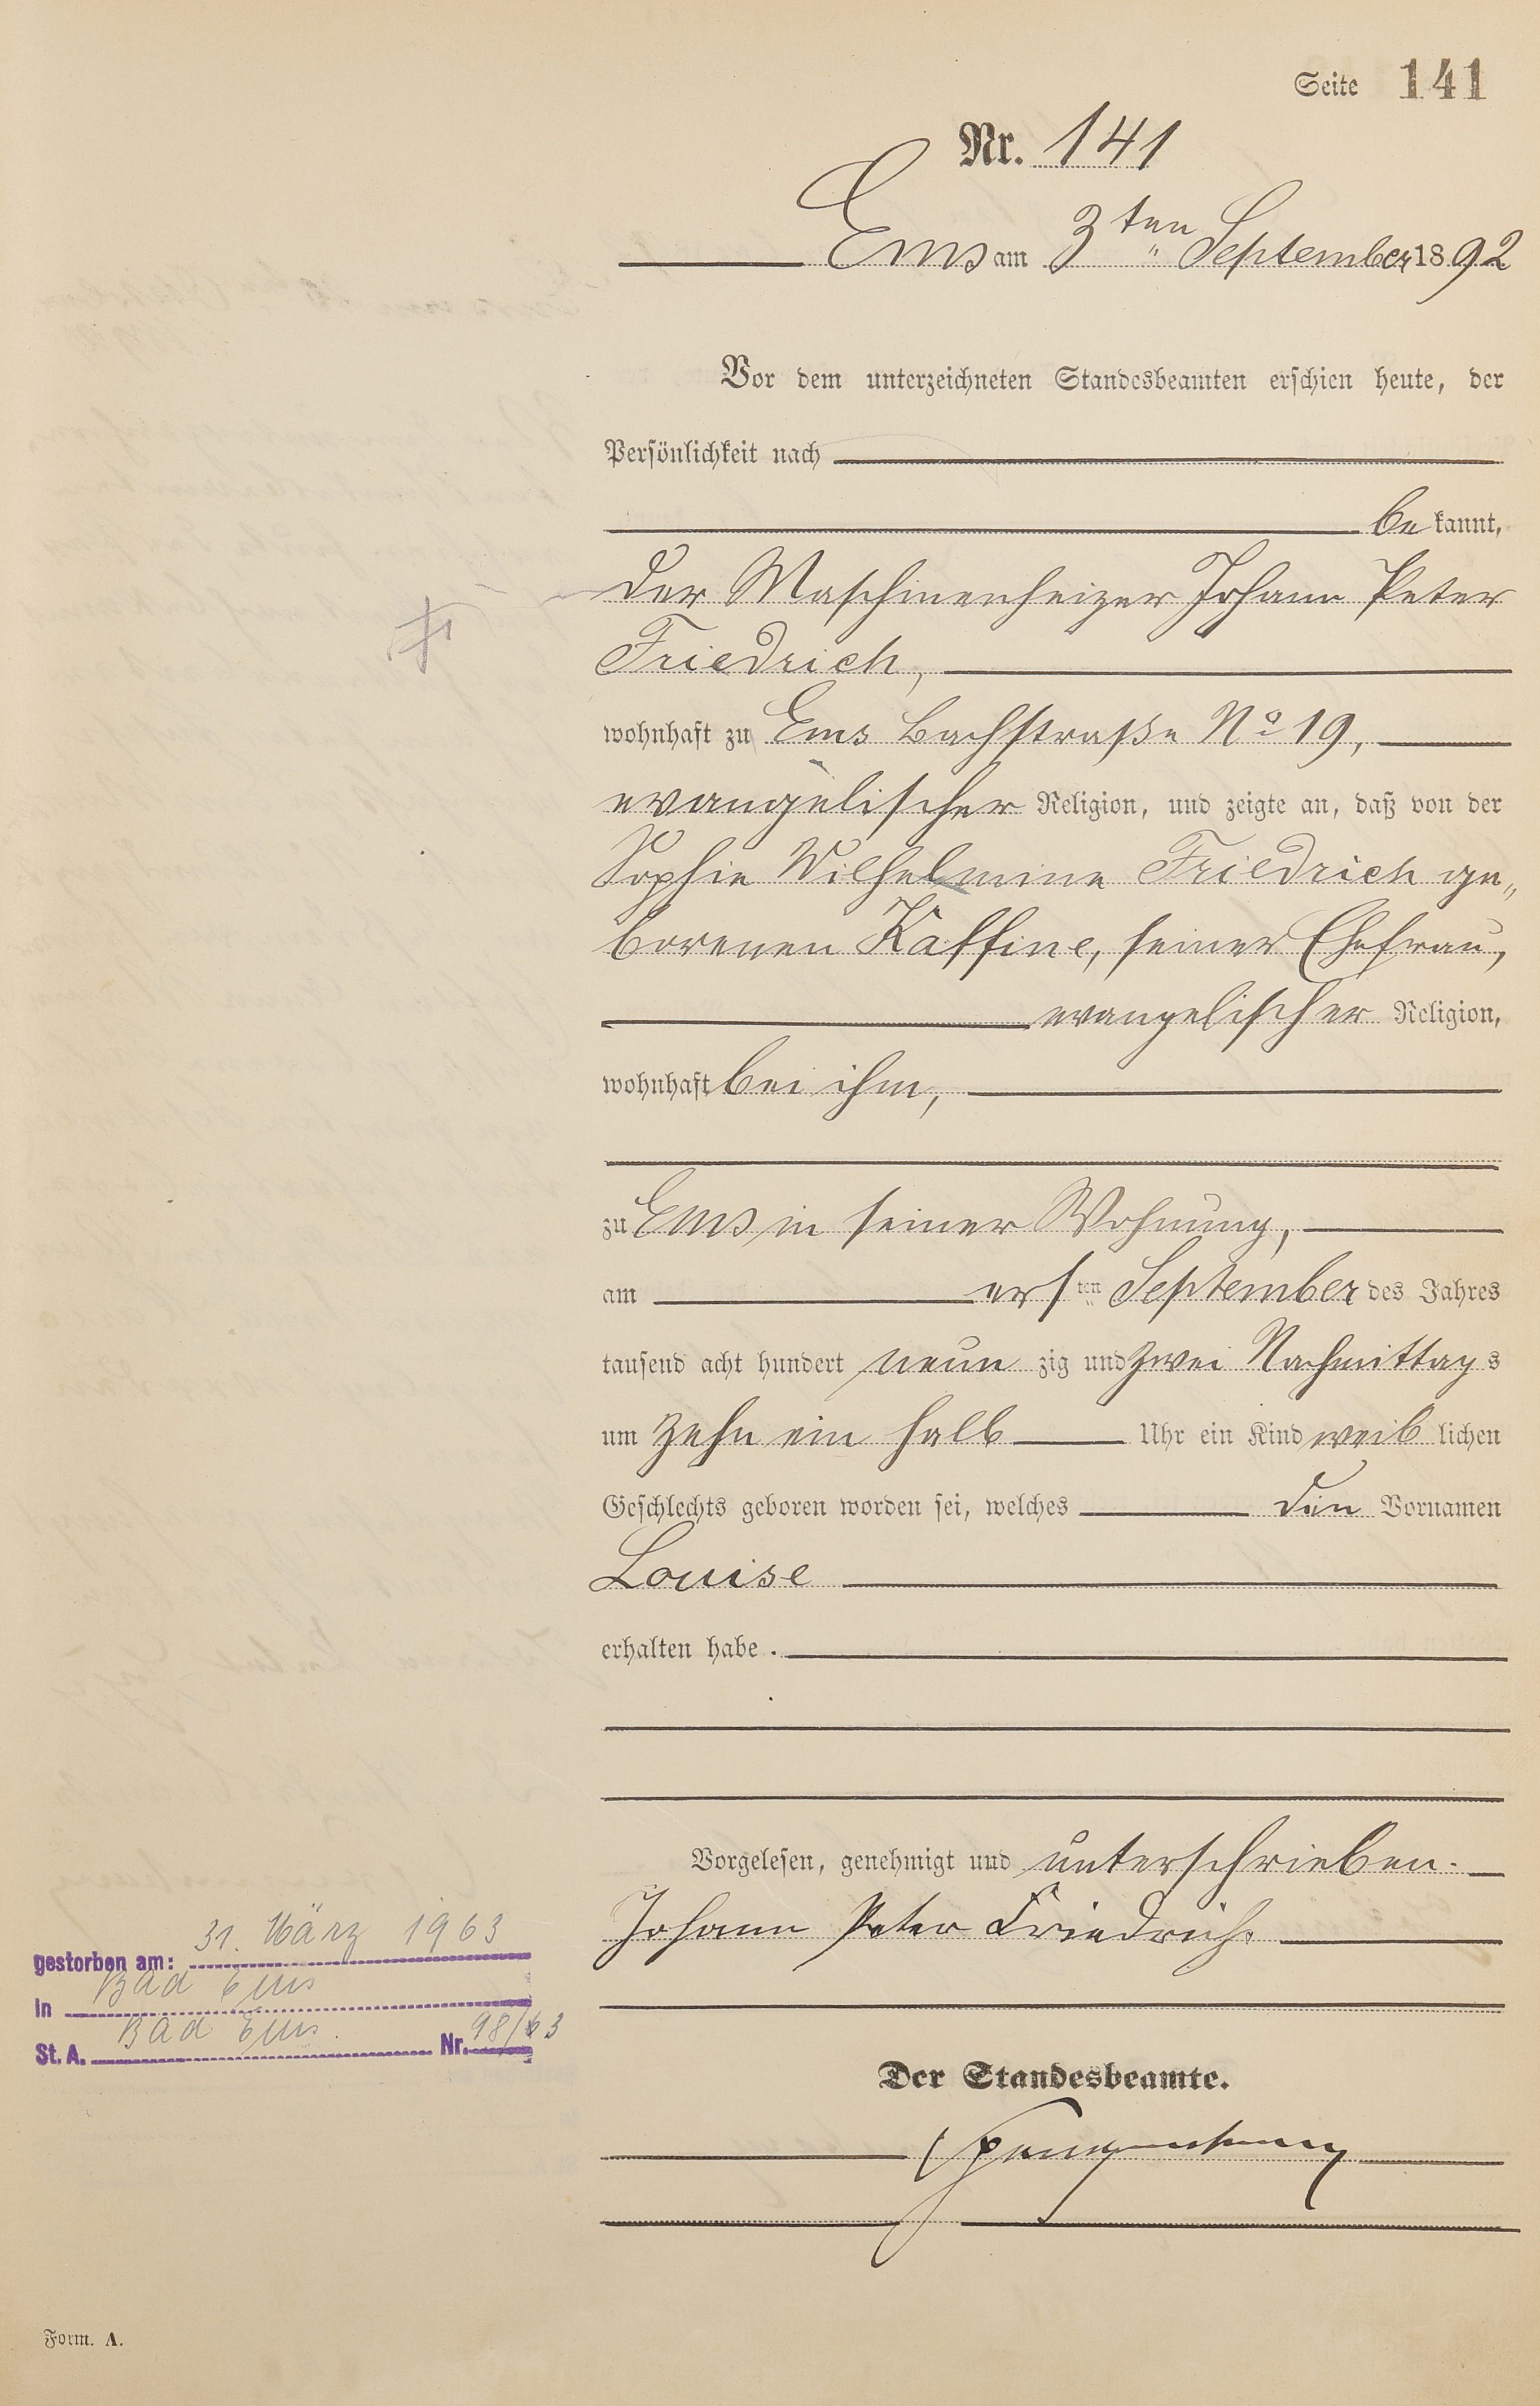 Seite 141
Nr. 141
Ems am 3ten September 1892
Vor dem unterzeichneten Standesbeamten erschien heute, der
Persönlichkeit nach
be kannt,
der Maschinenheizer Johann Peter
Friedrich,
wohnhaft zu Ems Bachstraße No 19,
evangelischer Religion, und zeigte an, daß von der
Sophie Wilhelmine Friedrich ge„
borenen Kaffine, seiner Ehefrau,
evangelischer Religion,
wohnhaft bei ihm,
zu Ems in seiner Wohnung,
am ersten September des Jahres
tausend acht hundert neun zig und zwei Nachmittags
um zehn ein halb Uhr ein Kind weib lichen
Geschlechts geboren worden sei, welches den Vornamen
Louise
erhalten habe.
Vorgelesen, genehmigt und unterschrieben.
Johann Peter Friedrich.
gestorben am: 31. März 1963
in Bad Ems
St. A. Bad Ems. Nr. 98/63
Der Standesbeamte.
Form. A.